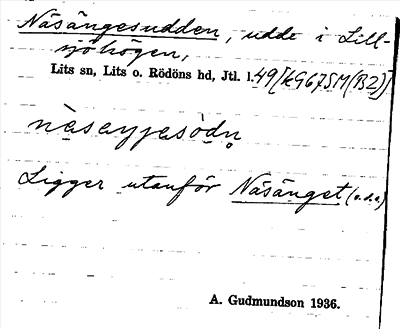 Näsängesudden, udde i Lill-
sjöhögen,
Lits sn, Lits o. Rödöns hd, Jtl. l. 49 [kG675M(132)]
Ligger utanför Näsänget (o.d.a)
A. Gudmundson 1936.